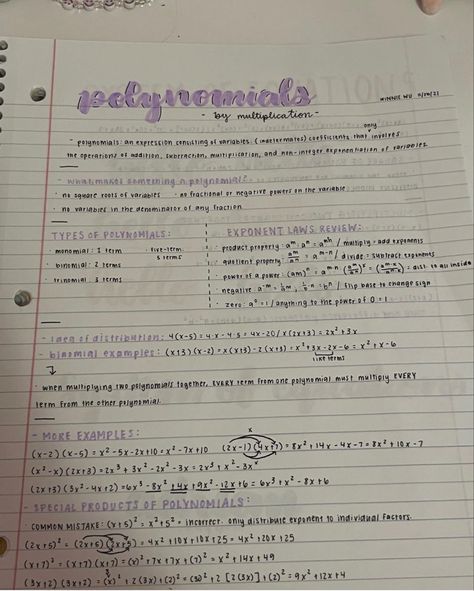 polynomials
- by multiplication -
WINNIE WU
only
- polynomials: an expression consisting of variables (indeterminates) coefficients that involves
the operations of addition, subtraction, multiplication, and non-integer exponentiation of variables.
- what makes something a polynomial?
· no square roots of variables · no fractional or negative powers on the variable
· no variables in the denominator of any fraction.
TYPES OF POLYNOMIALS:
· monomial: 1 term · five-term: 5 terms
· binomial: 2 terms
· trinomial: 3 terms
EXPONENT LAWS REVIEW:
· product property: / multiply = add exponents
· quotient property: / divide = subtract exponents
· power of a power: = dist. to all inside
· negative: / flip base to change sign
· zero: a⁰ = 1 / anything to the power of 0 = 1
- idea of distribution: 4(x-5) = 4·x - 4·5 = 4x-20 / x(2x+3) = 2x²+3x
- binomial examples: (x+3)(x-2) = x(x+3)-2(x+3) = x²+3x-2x-6 = x²+x-6
like terms
· when multiplying two polynomials together, EVERY term from one polynomial must multiply EVERY
term from the other polynomial.
- MORE EXAMPLES:
(x-2)(x-5) = x²-5x-2x+10 = x²-7x+10 (2x-1)(4x+7) = 8x²+14x-4x-7 = 8x²+10x-7
(x²-x)(2x+3) = 2x³+3x²-2x²-3x = 2x³+x²-3x
(2x+3)(3x²-4x+2) = 6x³-8x²+4x+9x²-12x+6 = 6x³+x²-8x+6
- SPECIAL PRODUCTS OF POLYNOMIALS:
· COMMON MISTAKE: (x+5)² = x²+5² = incorrect. only distribute exponent to individual factors.
(2x+5)² = (2x+5)(2x+5) = 4x²+10x+10x+25 = 4x²+20x+25
(x+7)² = (x+7)(x+7) = (x)²+7x+7x+(7)² = x²+14x+49
(3x+2)(3x+2) = +2[2(3x)]+(2)² = 9x²+12x+4